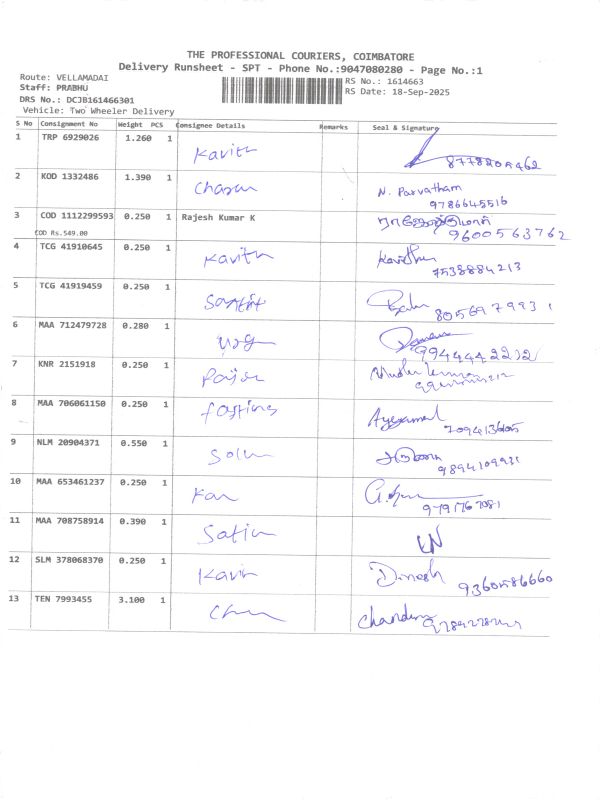 THE PROFESSIONAL COURIERS, COIMBATORE
Delivery Runsheet - SPT - Phone No.:9047080280 - Page No.:1
Route: VELLAMADAI RS No.: 1614663
Staff: PRABHU RS Date: 18-Sep-2025
DRS No.: DCJB161466301
Vehicle: Two Wheeler Delivery
S No Consignment No Weight PCS Consignee Details Remarks Seal & Signature
1 TRP 6929026 1.260 1 Kavith
8778205462
2 KOD 1332486 1.390 1 Charan N. Parvatham
9786645516
3 COD 1112299593 0.250 1 Rajesh Kumar K
9600563762
COD Rs.549.00
4 TCG 41910645 0.250 1 Kavith Kavitha
7538884213
5 TCG 41919459 0.250 1
8056979931
6 MAA 712479728 0.280 1
9944442212
7 KNR 2151918 0.250 1
8 MAA 706061150 0.250 1
9 NLM 20904371 0.550 1
9894109931
10 MAA 653461237 0.250 1 Kan
9791767081
11 MAA 708758914 0.390 1
12 SLM 378068370 0.250 1 Kavin Dinesh
9360586660
13 TEN 7993455 3.100 1